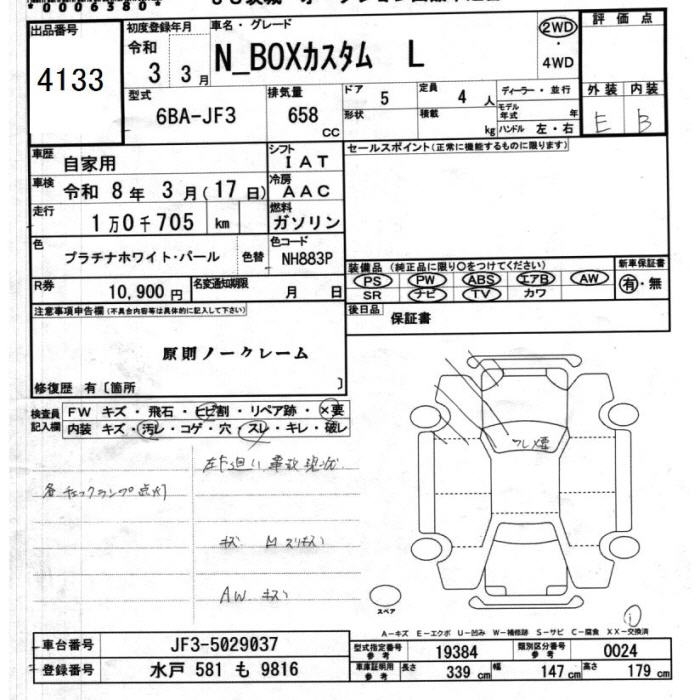 出品番号
4133
初度登録年月
令和
3 3月
車名・グレード
N_BOXカスタム L
2WD
・
4WD
評価点
外装 内装
E B
型式
6BA-JF3
排気量
658
CC
ドア
5
定員
4 人
形状
積載
kg
ディーラー・並行
モデル年式 年
ハンドル 左・右
車歴
自家用
シフト
IAT
車検
令和 8年 3月(17日)
冷房
AAC
走行
1万0千705 km
燃料
ガソリン
色
プラチナホワイト・パール
色替
色コード
NH883P
R券
10,900円
名変通知期限
月 日
セールスポイント(正常に機能するものに限ります)
装備品 (純正品に限り○をつけてください)
PS PW ABS エアB AW
SR ナビ TV カワ
新車保証書
有・無
後日品
保証書
注意事項申告欄(不具合内容等は具体的に記入して下さい)
原則ノークレーム
修復歴 有〔箇所 〕
検査員記入欄
FW キズ・飛石・ヒビ割・リペア跡・×要
内装 キズ・汚レ・コゲ・穴・スレ・キレ・破レ
各チェックランプ点灯
キズ
AW キズ
スペア
A-キズ E-エクボ U-凹み W-補修跡 S-サビ C-腐食 XX-交換済
車台番号
JF3-5029037
登録番号
水戸 581 も 9816
型式指定番号
参考
19384
類別区分番号
参考
0024
車庫証明用
参考
長さ 339 cm
幅 147 cm
高さ 179 cm